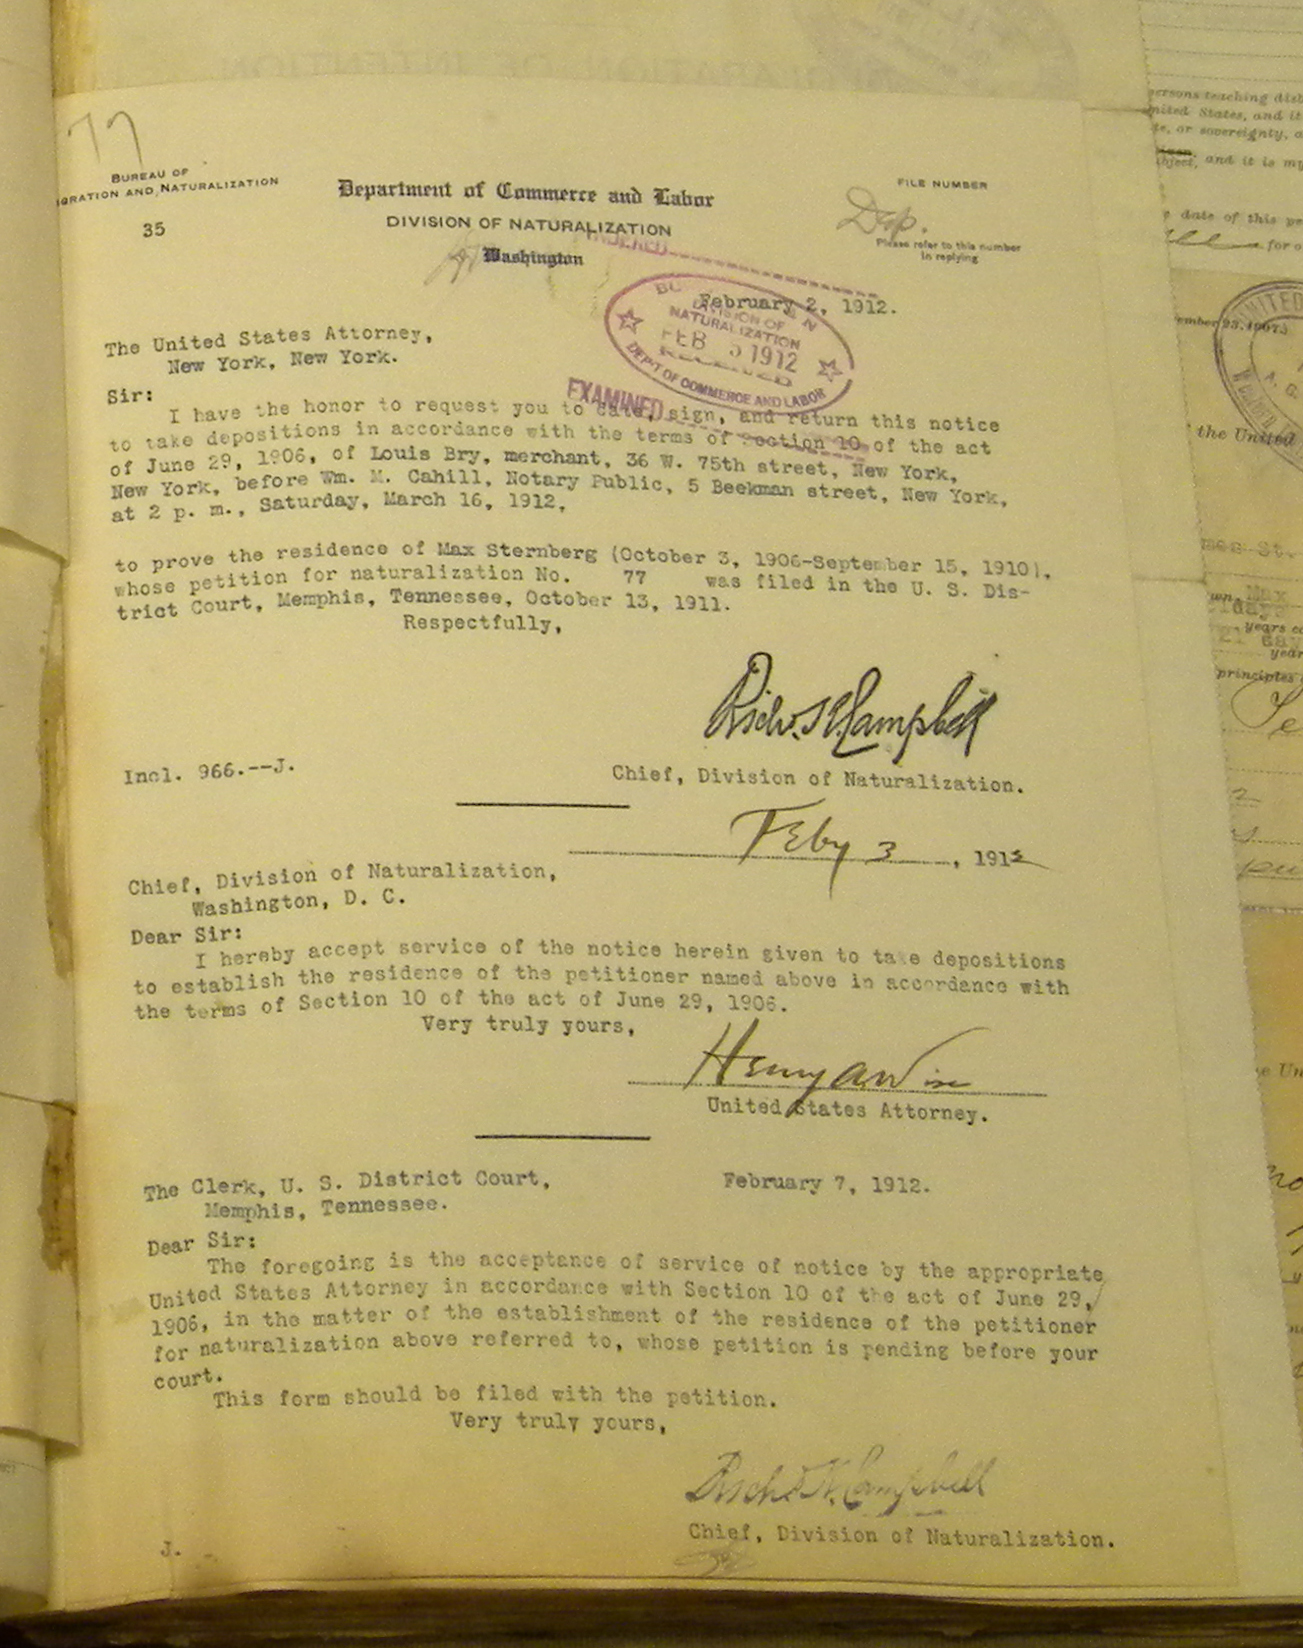 77
BUREAU OF
GRATION AND NATURALIZATION
35
Department of Commerce and Labor
DIVISION OF NATURALIZATION
Washington
FILE NUMBER
Dep.
Please refer to this number
in replying
INDEXED
February 2, 1912.
DIVISION OF
NATURALIZATION
FEB 5 1912
RECEIVED
DEP'T OF COMMERCE AND LABOR
EXAMINED
The United States Attorney,
New York, New York.
Sir:
I have the honor to request you to date, sign, and return this notice
to take depositions in accordance with the terms of Section 10 of the act
of June 29, 1906, of Louis Bry, merchant, 36 W. 75th street, New York,
New York, before Wm. M. Cahill, Notary Public, 5 Beekman street, New York,
at 2 p. m., Saturday, March 16, 1912,
to prove the residence of Max Sternberg (October 3, 1906-September 15, 1910),
whose petition for naturalization No. 77 was filed in the U. S. Dis-
trict Court, Memphis, Tennessee, October 13, 1911.
Respectfully,
Richd. K. Campbell
Incl. 966.--J.
Chief, Division of Naturalization.
Feby 3, 1912
Chief, Division of Naturalization,
Washington, D. C.
Dear Sir:
I hereby accept service of the notice herein given to take depositions
to establish the residence of the petitioner named above in accordance with
the terms of Section 10 of the act of June 29, 1906.
Very truly yours,
Henry A Wise
United States Attorney.
The Clerk, U. S. District Court,
February 7, 1912.
Memphis, Tennessee.
Dear Sir:
The foregoing is the acceptance of service of notice by the appropriate
United States Attorney in accordance with Section 10 of the act of June 29,
1906, in the matter of the establishment of the residence of the petitioner
for naturalization above referred to, whose petition is pending before your
court.
This form should be filed with the petition.
Very truly yours,
Richd K. Campbell
Chief, Division of Naturalization.
J.
persons teaching
United States, and it
or sovereignty,
and it is my
date of this
for
UNITED
the United
St.
Max
days
years
principles